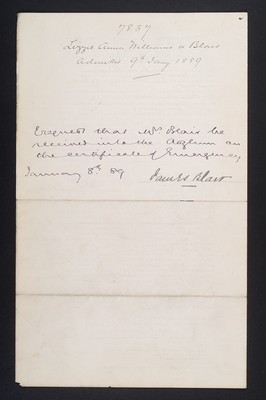 7857
Lizzie Anna Williams or Blair
Admitted 9th Jany 1889
I request that Mrs Blair be
received into the Asylum on
the certificate of Emergency
January 8th 89 James Blair